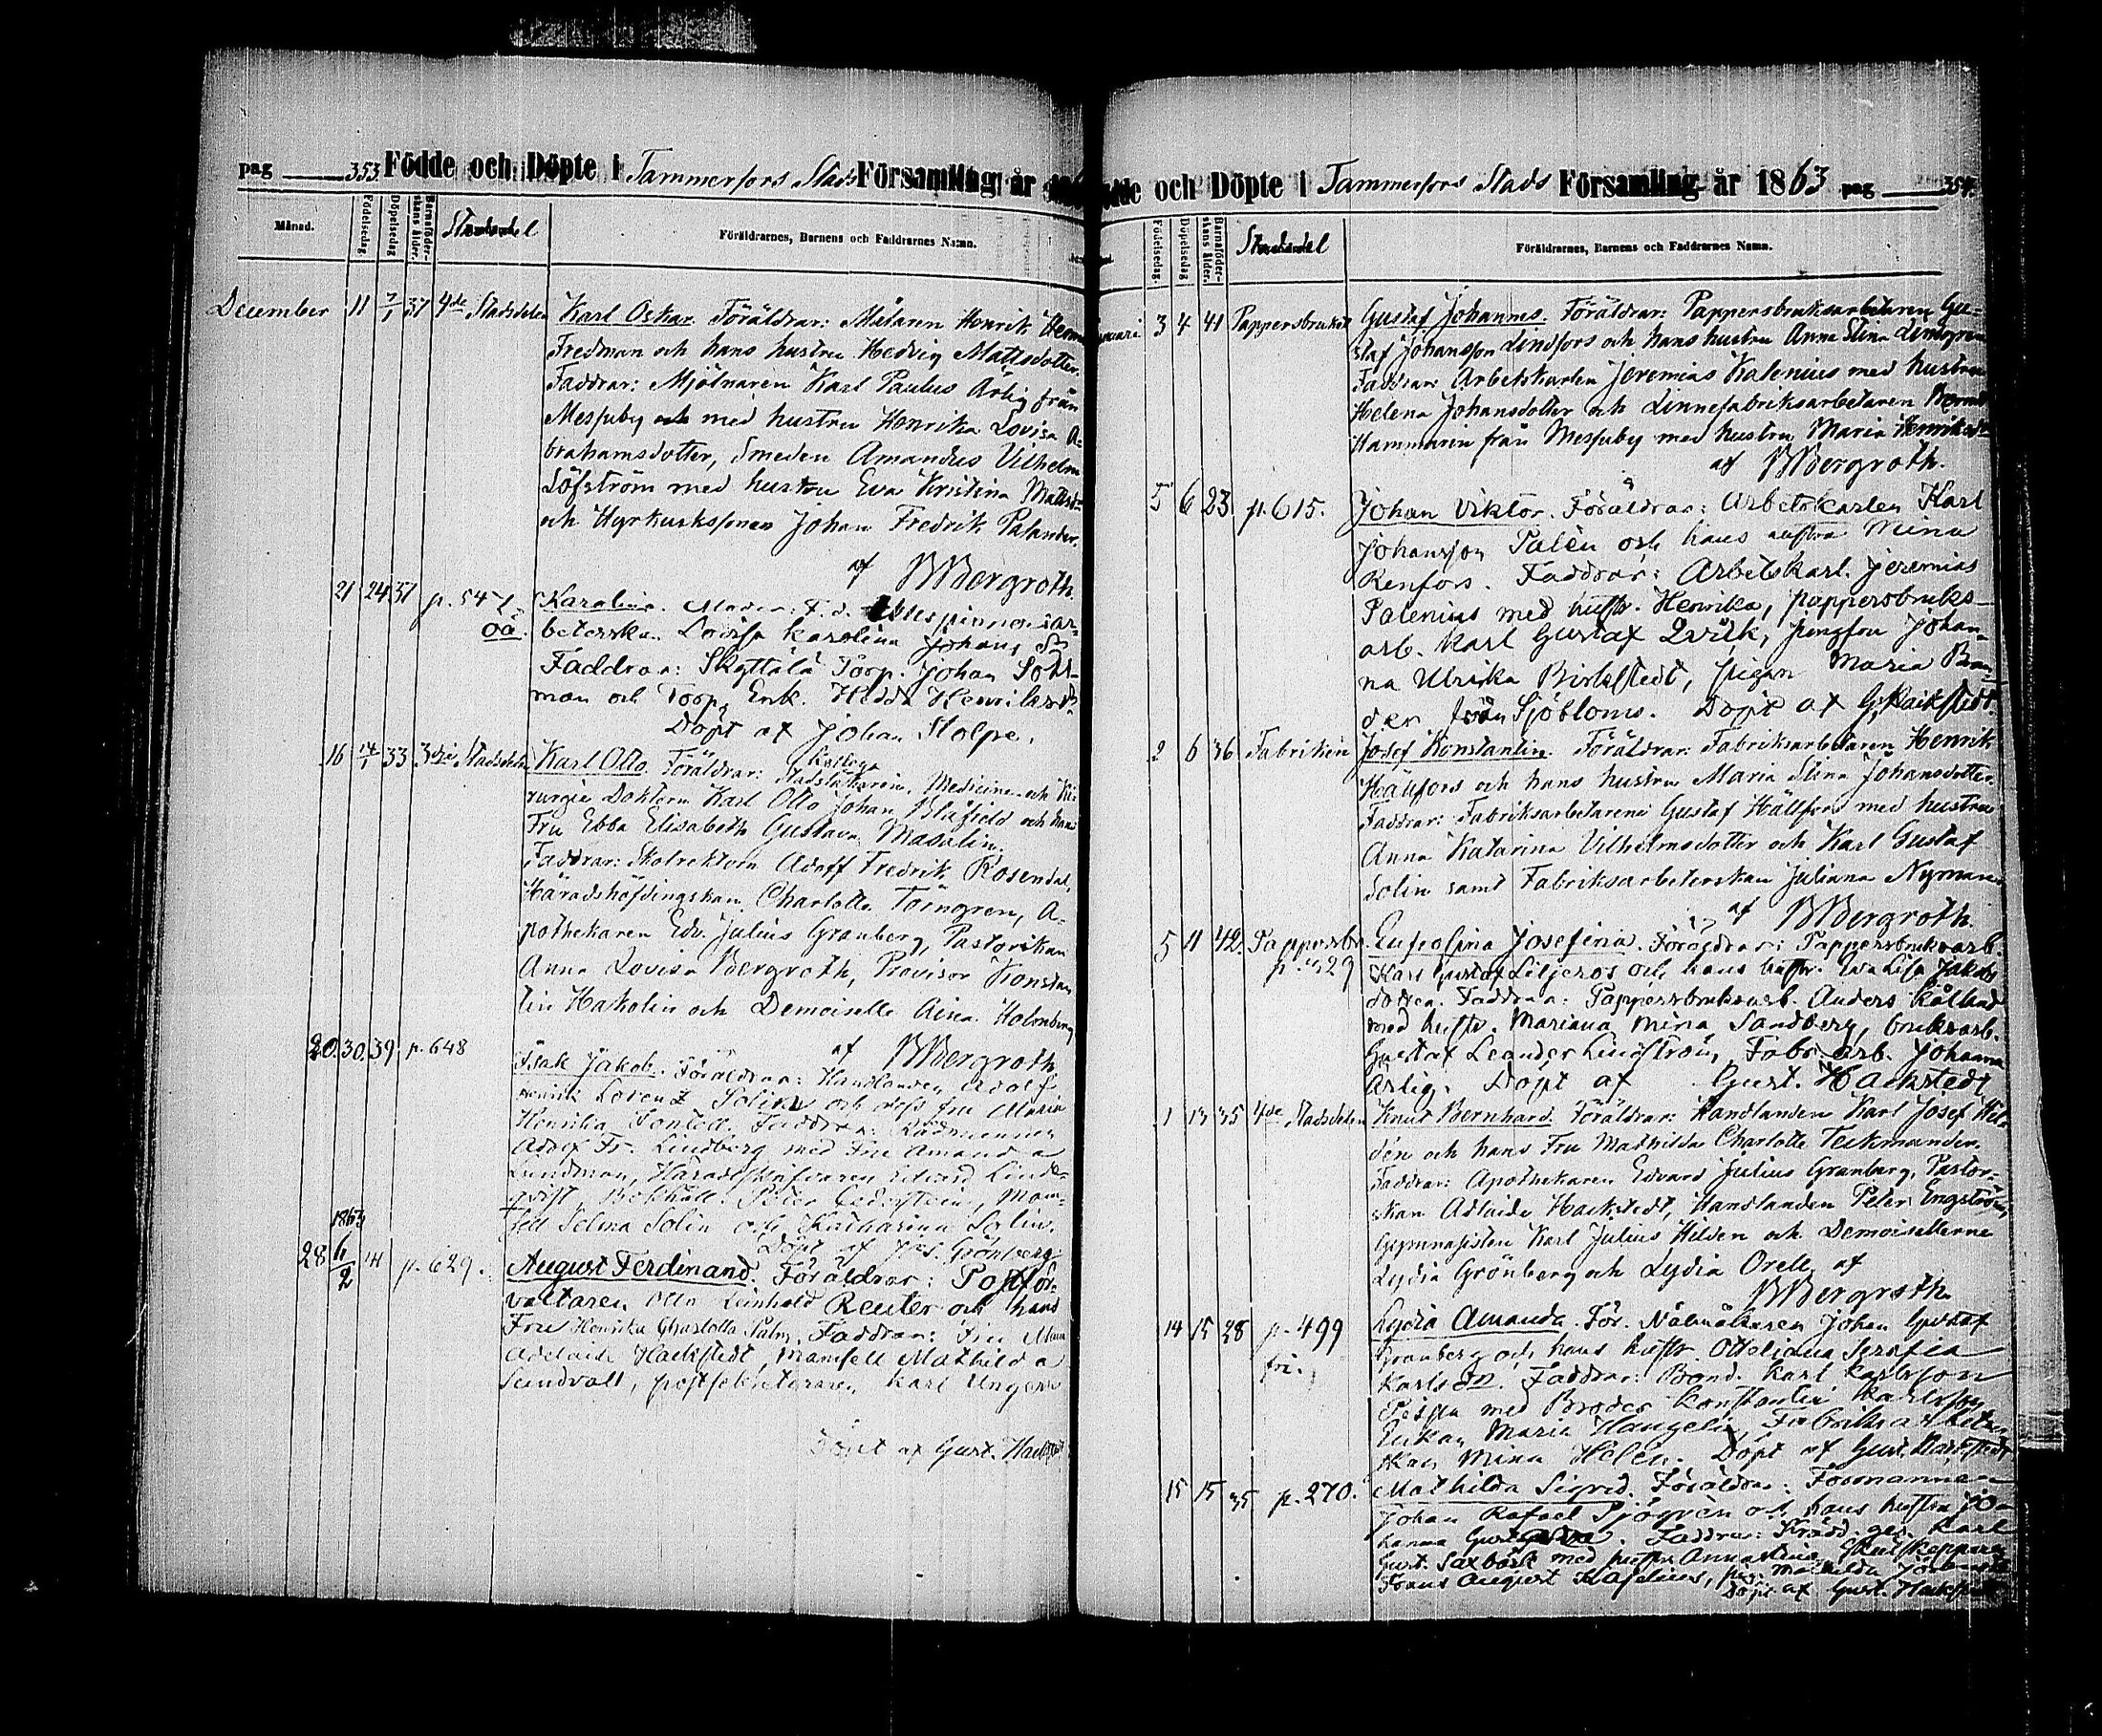 pag 353 Födde och Döpte i Tammerfors Stads Församling år
Månad.
Födelsedag.
Döpelsedag
Barnaföderskans ålder.
Stadsdel
Föräldrarnes, Barnens och Faddrarnes Namn.
December 11 7/1 37 4de Stadsdelen Karl Oskar. Föräldrar: Målaren Henrik
Fredman och hans hustru Hedvig Mattsdotter.
Faddrar: Mjölnaren Karl Paulus Ärlig från
Messuby och med hustru Henrika Lovisa A-
brahamsdotter, Smeden Amandus Vilhelm
Löfström med hustru Eva Kristina Mattsdr
och Hyrkuskssonen Johan Fredrik Palander.
af BBergroth
21 24 37 p. 547 Karolina. Moder: F. d.
oä. beterskan Lovisa Karolina Johans Dr
Faddrar: Skyttälä Torp. Johan
man och Torp. Enk. Hedda Henriksdr.
Döpt af Johan Stolpe.
16 14/1 33 3dje Stadsdelen Karl Otto. Föräldrar: Stadsläkaren, Medicine och Ki-
rurgie Doktorn Karl Otto Johan Blåfield och hans
Fru Ebba Elisabeth Gustava Masalin.
Faddrar: Skolrektorn Adolf Fredrik Rosendal,
Häradshöfdingskan Charlotta Törngren, A-
pothekaren Edv. Julius Granberg, Pastorskan
Anna Lovisa Bergroth, Provisor Konstan
tin Hakolin och Demoiselle Aina Holmberg
af BBergroth
20. 30. 39. p. 648 Isak Jakob. Föräldrar: Handlanden Adolf
Lorenz Solin och dess fru Maria
Henrika Fontell. Faddrar: Rådmannen
Adolf Fr. Lindberg med Fru Amanda
Lundman, Häradsskrifvaren Edvard Lind-
qvist, Bokhåll. Peter Mam-
sell Selma Solin och Katharina Solin.
Döpt af Joh. Grönberg
1863
28 6/2 41 p. 629. August Ferdinand. Föräldrar: Postför-
valtaren Otto Reinhold Reuter och hans
Fru Henrika Charlotta Palm. Faddrar: Fru
Adelaide Hackstedt, Mamsell Mathilda
Sundvall, postsekreteraren Karl Ungern
Döpt af Gust. Hackstedt
Födde och Döpte i Tammerfors Stads Församling år 1863 pag 354.
Födelsedag.
Döpelsedag
Barnaföderskans ålder.
Stadsdel
Föräldrarnes, Barnens och Faddrarnes Namn.
Januari 3 4 41 Pappersbruket Gustaf Johannes. Föräldrar: Pappersbruksarbetaren Gu-
staf Johansson Lindfors och hans hustru Anna Stina Lindgren
Faddrar: Arbetskarlen Jeremias Kalenius med hustru
Helena Johansdotter och Linnefabriksarbetaren
Hammarén från Messuby med hustru Maria Henriksdr
af BBergroth.
5 6 23 p. 615. Johan Viktor. Föräldrar: Arbetskarlen Karl
Johansson Palén och hans hustru Mina
Renfors. Faddrar: Arbetskarl. Jeremias
Palenius med hustr. Henrika, pappersbruks-
arb. Karl Gustaf Qvick, jungfru Johan-
na Ulrika Birkstedt, pigan Maria
der från Sjöbloms. Döpt af G. Hackstedt.
2 6 36 Fabriken Josef Konstantin. Föräldrar: Fabriksarbetaren Henrik
Hällfors och hans hustru Maria Stina Johansdotter.
Faddrar: Fabriksarbetarene Gustaf Hällfors med hustru
Anna Katarina Vilhelmsdotter och Karl Gustaf
Solin samt Fabriksarbeterskan Juliana Nyman
af BBergroth.
5 11 42. Pappersbr. Eufrosina Josefina. Föräldrar: Pappersbruksarb.
p. 429 Karl Gustaf Liljeros och hans hustr. Eva Lisa Jakobs
dotter. Faddrar: Pappersbruksarb. Anders
med hustr. Mariana, Mina Sandberg, bruksarb.
Gustaf Leander Lindström, Fabr. arb. Johanna
Ärlig. Döpt af Gust. Hackstedt
1 13 35 4de Stadsdelen Knut Bernhard. Föräldrar: Handlanden Karl Josef Hil-
dén och hans Fru Mathilda Charlotta Teckmander.
Faddrar: Apothekaren Edvard Julius Granberg, Pastor-
skan Adlaide Hackstedt, Handlanden Peter Engström,
Gymnasisten Karl Julius Hildén och Demoisellerne
Lydia Grönberg och Lydia Orell af
BBergroth
14 15 28 p. 499 Lydia Amanda. För. Nålmakaren Johan Gustaf
fri. Granberg och hans hustr. Otteliana Serafia
Karlsdr. Faddrar: Bond. Karl Karlsson
med Broder Konstantin Karlsson
Enkan Maria Fabriksarbeter-
skan Mina Helén. Döpt af Gust. Hackstedt
15 15 35 p. 270. Mathilda Sigrid. Föräldrar: Formannen
Johan Rafael Sjögrén och hans hustru Jo-
hanna Faddrar: Karl
Gust. Saxbäck med hustru Anna Stina,
Frans August Mathilda
Döpt af Gust. Hackstedt